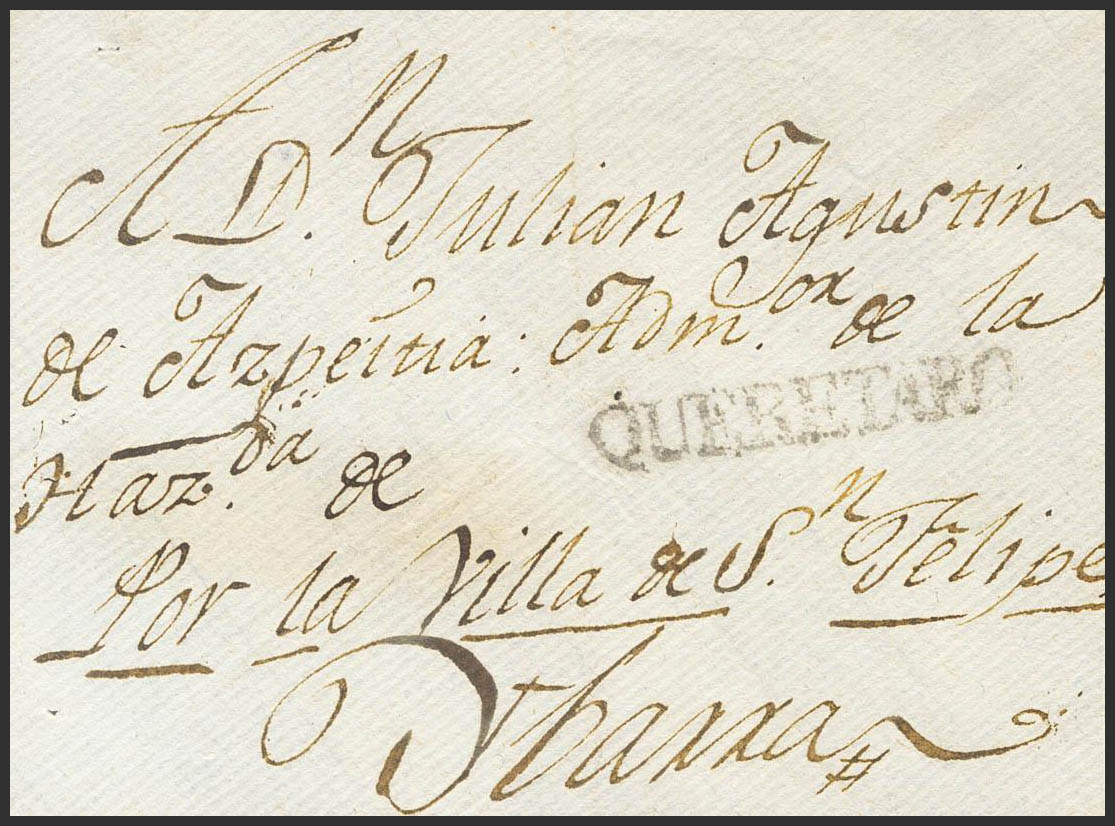 A D.n Julian Agustin
de Azpeitia: Adm.or de la
QUERETARO
Haz.da de
Por la Villa de S.n Felipe
Ybarra